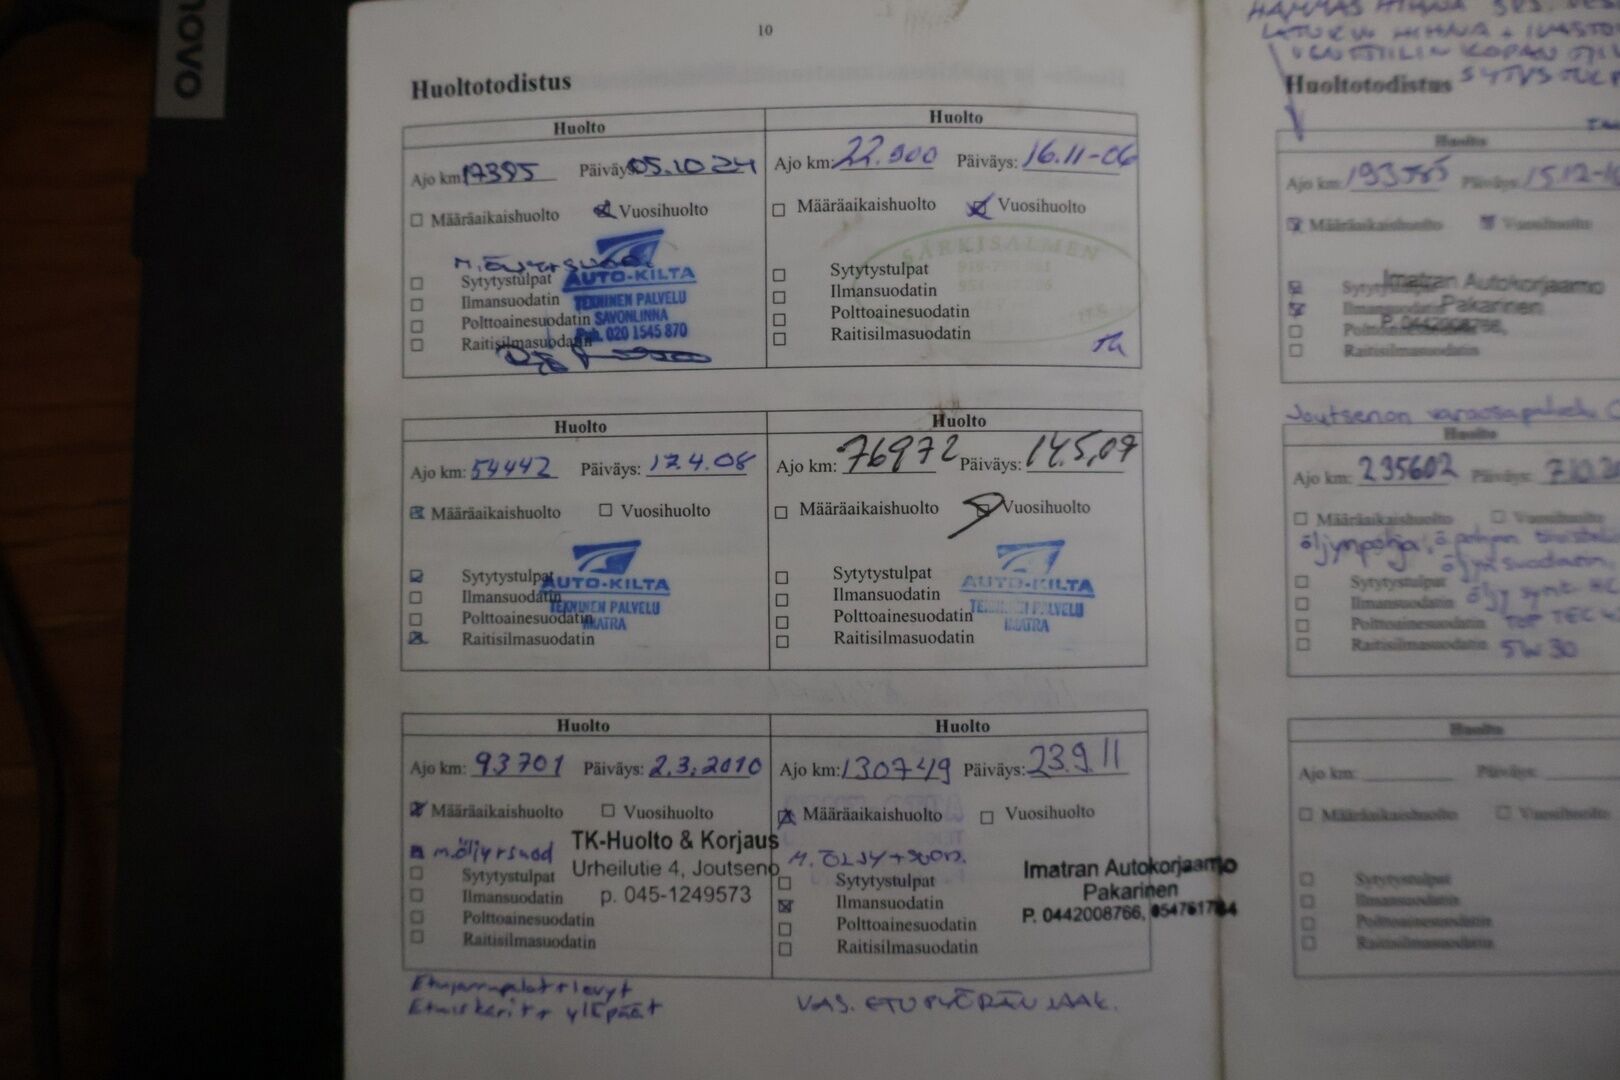 novo
10
Huoltotodistus
Huolto
Ajo km: 17395 Päiväys: 05.10.24
Määräaikaishuolto Vuosihuolto
M. Öljy+suod.
Sytytystulpat
Ilmansuodatin
Polttoainesuodatin
Raitisilmasuodatin
AUTO-KILTA
TEKNINEN PALVELU
SAVONLINNA
Puh. 020 1545 870
Huolto
Ajo km: 22.900 Päiväys: 16.11-06
Määräaikaishuolto Vuosihuolto
SÄRKISALMEN
Sytytystulpat
Ilmansuodatin
Polttoainesuodatin
Raitisilmasuodatin
Huolto
Ajo km: 54442 Päiväys: 17.4.08
Määräaikaishuolto Vuosihuolto
Sytytystulpat
Ilmansuodatin
Polttoainesuodatin
Raitisilmasuodatin
AUTO-KILTA
TEKNINEN PALVELU
IMATRA
Huolto
Ajo km: 76972 Päiväys: 14.5,09
Määräaikaishuolto Vuosihuolto
Sytytystulpat
Ilmansuodatin
Polttoainesuodatin
Raitisilmasuodatin
AUTO-KILTA
TEKNINEN PALVELU
IMATRA
Huolto
Ajo km: 93701 Päiväys: 2.3.2010
Määräaikaishuolto Vuosihuolto
m.öljy+suod
Sytytystulpat
Ilmansuodatin
Polttoainesuodatin
Raitisilmasuodatin
TK-Huolto & Korjaus
Urheilutie 4, Joutseno
p. 045-1249573
Etujarrupalat+levyt
Huolto
Ajo km: 130749 Päiväys: 23.9.11
Määräaikaishuolto Vuosihuolto
M. ÖLJY+SUOD.
Sytytystulpat
Ilmansuodatin
Polttoainesuodatin
Raitisilmasuodatin
Imatran Autokorjaamo
Pakarinen
P. 0442008766,
VAS. ETUPYÖRÄN LAAK.
HAMMAS HIHNA
LATURIN HIHNA +
VENTTIILIN KOPAN
Huoltotodistus
Huolto
Ajo km: Päiväys: 15.12-
Määräaikaishuolto Vuosihuolto
Sytytystulpat
Ilmansuodatin
Polttoainesuodatin
Raitisilmasuodatin
Imatran Autokorjaamo
Pakarinen
P. 0442008766,
Joutsenon varaosapalvelu
Huolto
Ajo km: 235602 Päiväys:
Määräaikaishuolto Vuosihuolto
öljynpohja,
öljynsuodatin,
Sytytystulpat
Ilmansuodatin
Polttoainesuodatin TOP TEC
Raitisilmasuodatin 5W30
Huolto
Ajo km: Päiväys:
Määräaikaishuolto Vuosihuolto
Sytytystulpat
Ilmansuodatin
Polttoainesuodatin
Raitisilmasuodatin